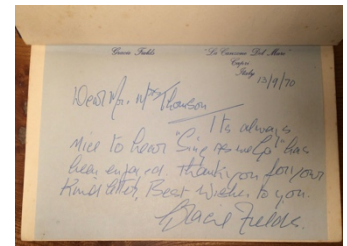 Gracie Fields
"La Canzone Del Mare"
Capri
Italy
13/9/70
Dear Mr. Mrs Thomson
Its always
nice to hear "Sing As We Go" has
been enjoyed. Thankyou for your
Kind letter, Best Wishes to you.
Gracie Fields.